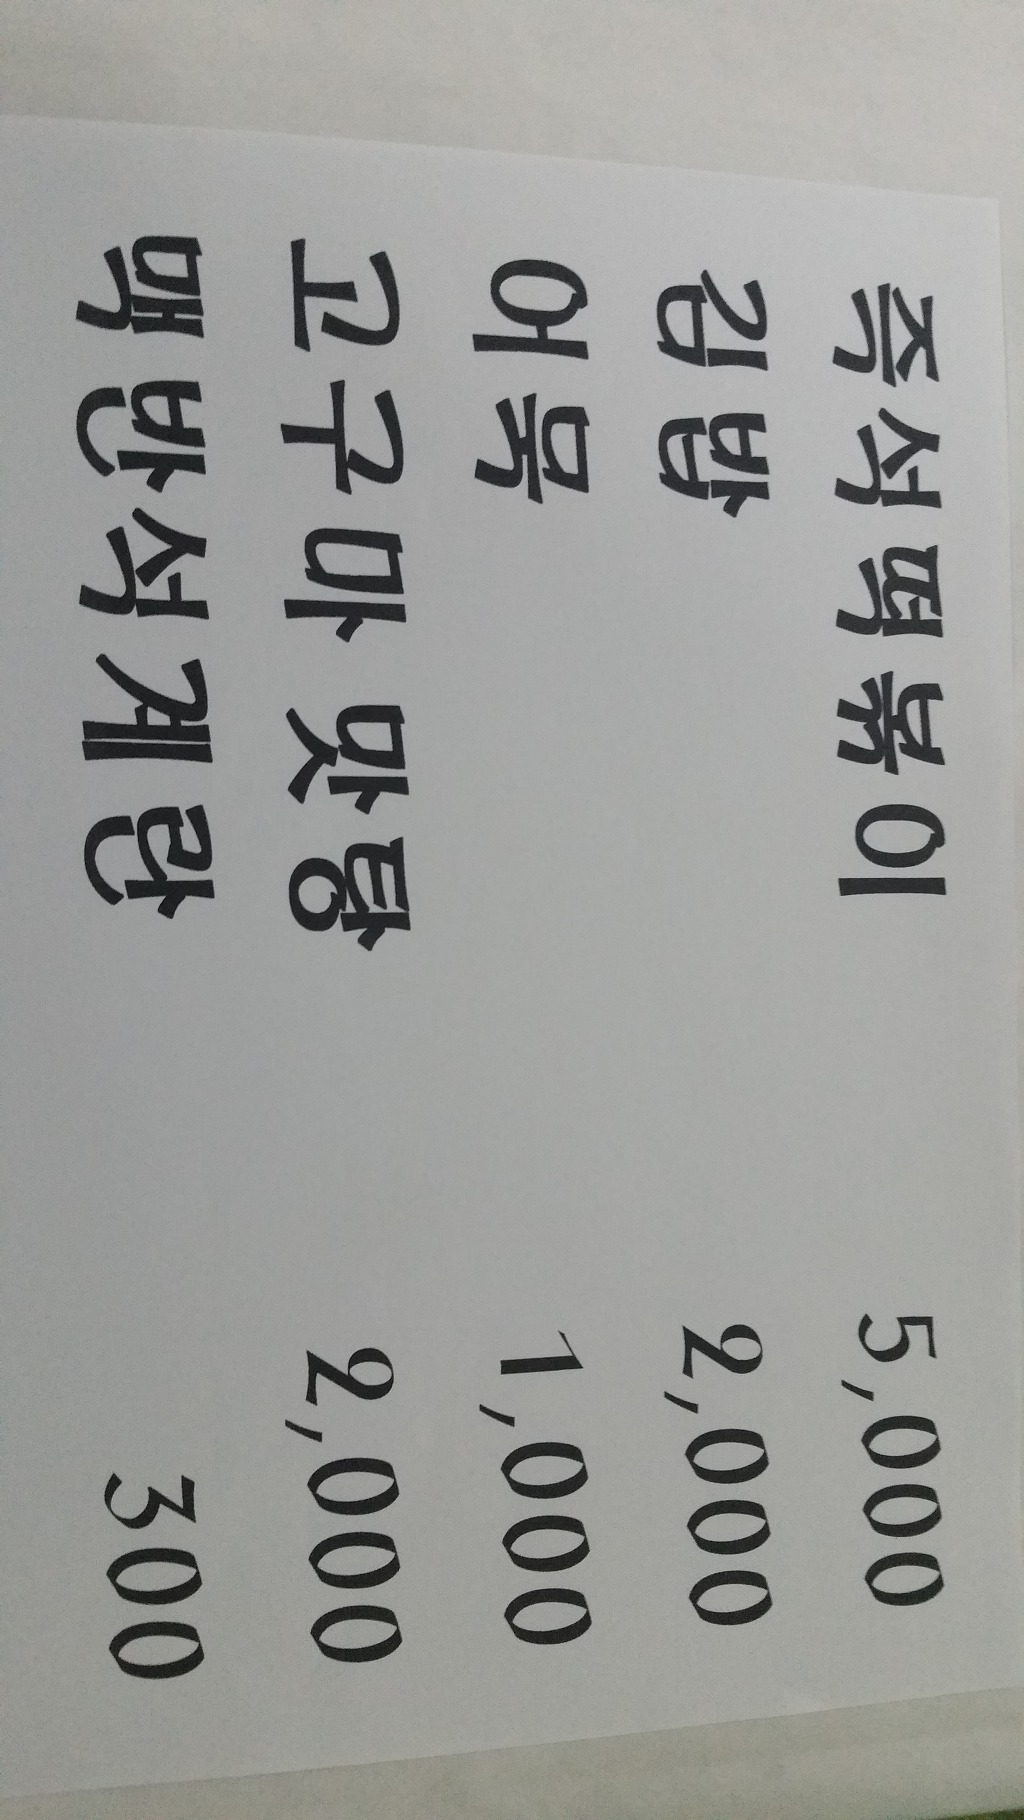 즉석떡볶이 5,000
김밥 2,000
어묵 1,000
고구마 맛탕 2,000
맥반석계란 300